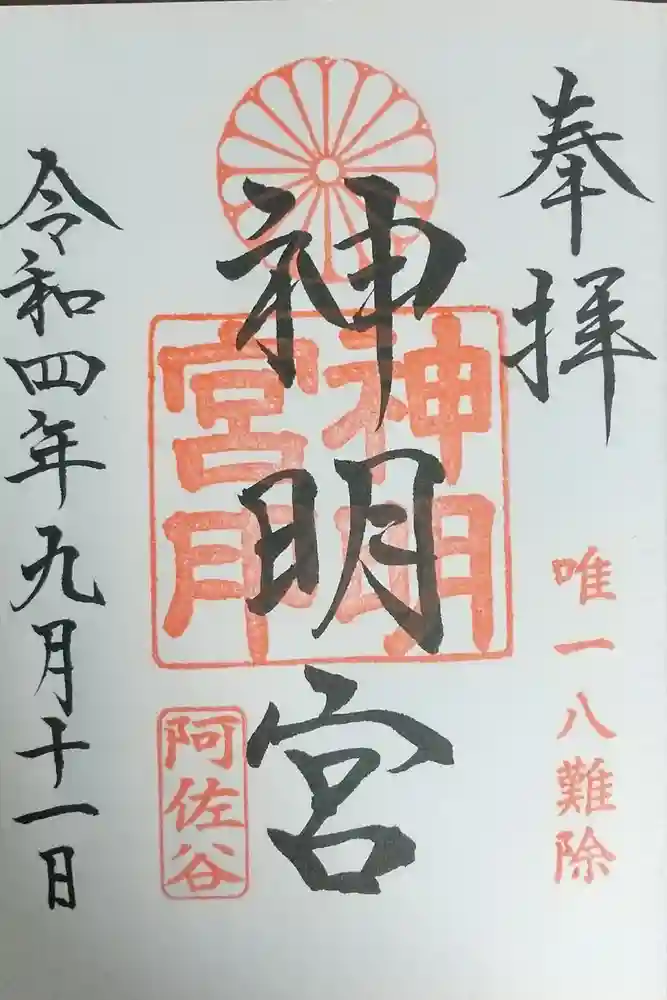 奉拝
唯一八難除
神明宮
神明
宮印
阿佐谷
令和四年九月十一日